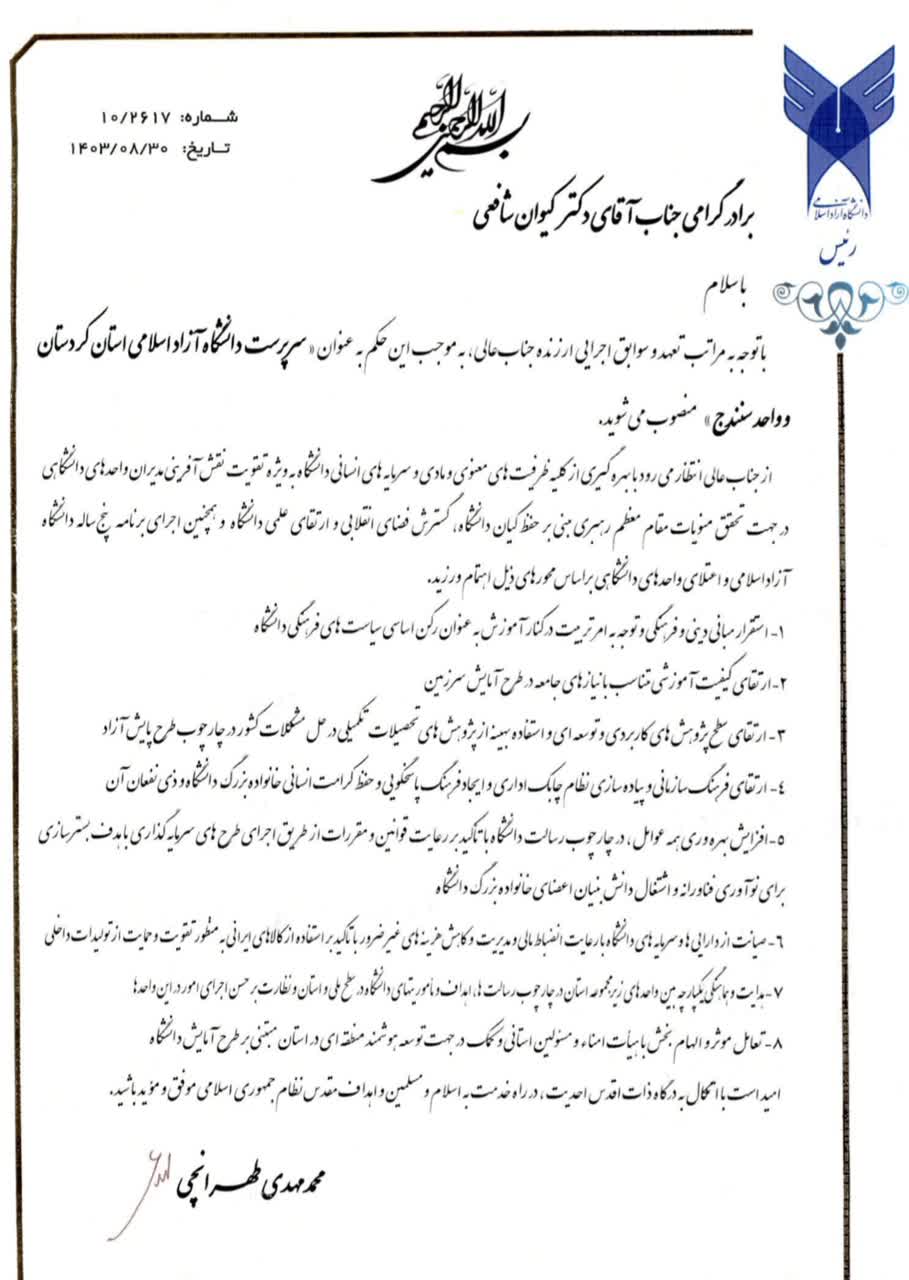 بسم الله الرحمن الرحیم
شماره: ۱۰/۲۶۱۷
تاریخ: ۱۴۰۳/۰۸/۳۰
دانشگاه آزاد اسلامی
رئیس
برادر گرامی جناب آقای دکتر کیوان شافعی
با سلام
با توجه به مراتب تعهد و سوابق اجرایی ارزنده جناب عالی، به موجب این حکم به عنوان «سرپرست دانشگاه آزاد اسلامی استان کردستان
و واحد سنندج» منصوب می شوید.
از جناب عالی انتظار می رود با بهره گیری از کلیه ظرفیت های معنوی و مادی و سرمایه های انسانی دانشگاه به ویژه تقویت نقش آفرینی مدیران واحدهای دانشگاهی
در جهت تحقق منویات مقام معظم رهبری مبنی بر حفظ کیان دانشگاه، گسترش فضای انقلابی و ارتقای علمی دانشگاه و همچنین اجرای برنامه پنج ساله دانشگاه
آزاد اسلامی و اعتلای واحدهای دانشگاهی براساس محورهای ذیل اهتمام ورزید.
۱- استقرار مبانی دینی و فرهنگی و توجه به امر تربیت در کنار آموزش به عنوان رکن اساسی سیاست های فرهنگی دانشگاه
۲- ارتقای کیفیت آموزشی متناسب با نیازهای جامعه در طرح آمایش سرزمین
۳- ارتقای سطح پژوهش های کاربردی و توسعه ای و استفاده بهینه از پژوهش های تحصیلات تکمیلی در حل مشکلات کشور در چارچوب طرح پایش آزاد
۴- ارتقای فرهنگ سازمانی و پیاده سازی نظام چابک اداری و ایجاد فرهنگ پاسخگویی و حفظ کرامت انسانی خانواده بزرگ دانشگاه و ذی نفعان آن
۵- افزایش بهره وری همه عوامل، در چارچوب رسالت دانشگاه با تأکید بر رعایت قوانین و مقررات از طریق اجرای طرح های سرمایه گذاری با هدف بسترسازی
برای نوآوری فناورانه و اشتغال دانش بنیان اعضای خانواده بزرگ دانشگاه
۶- صیانت از دارایی ها و سرمایه های دانشگاه با رعایت انضباط مالی و مدیریت و کاهش هزینه های غیرضرور با تأکید بر استفاده از کالاهای ایرانی به منظور تقویت و حمایت از تولیدات داخلی
۷- هدایت و هماهنگی یکپارچه بین واحدهای زیرمجموعه استان در چارچوب رسالت ها، اهداف و مأموریتهای دانشگاه در سطح ملی و استان و نظارت بر حسن اجرای امور در این واحدها
۸- تعامل موثر و الهام بخش با هیأت امناء و مسئولین استانی و کمک در جهت توسعه هوشمند منطقه ای در استان مبتنی بر طرح آمایش دانشگاه
امید است با اتکال به درگاه ذات اقدس احدیت، در راه خدمت به اسلام و مسلمین و اهداف مقدس نظام جمهوری اسلامی موفق و مؤید باشید.
محمد مهدی طهرانچی